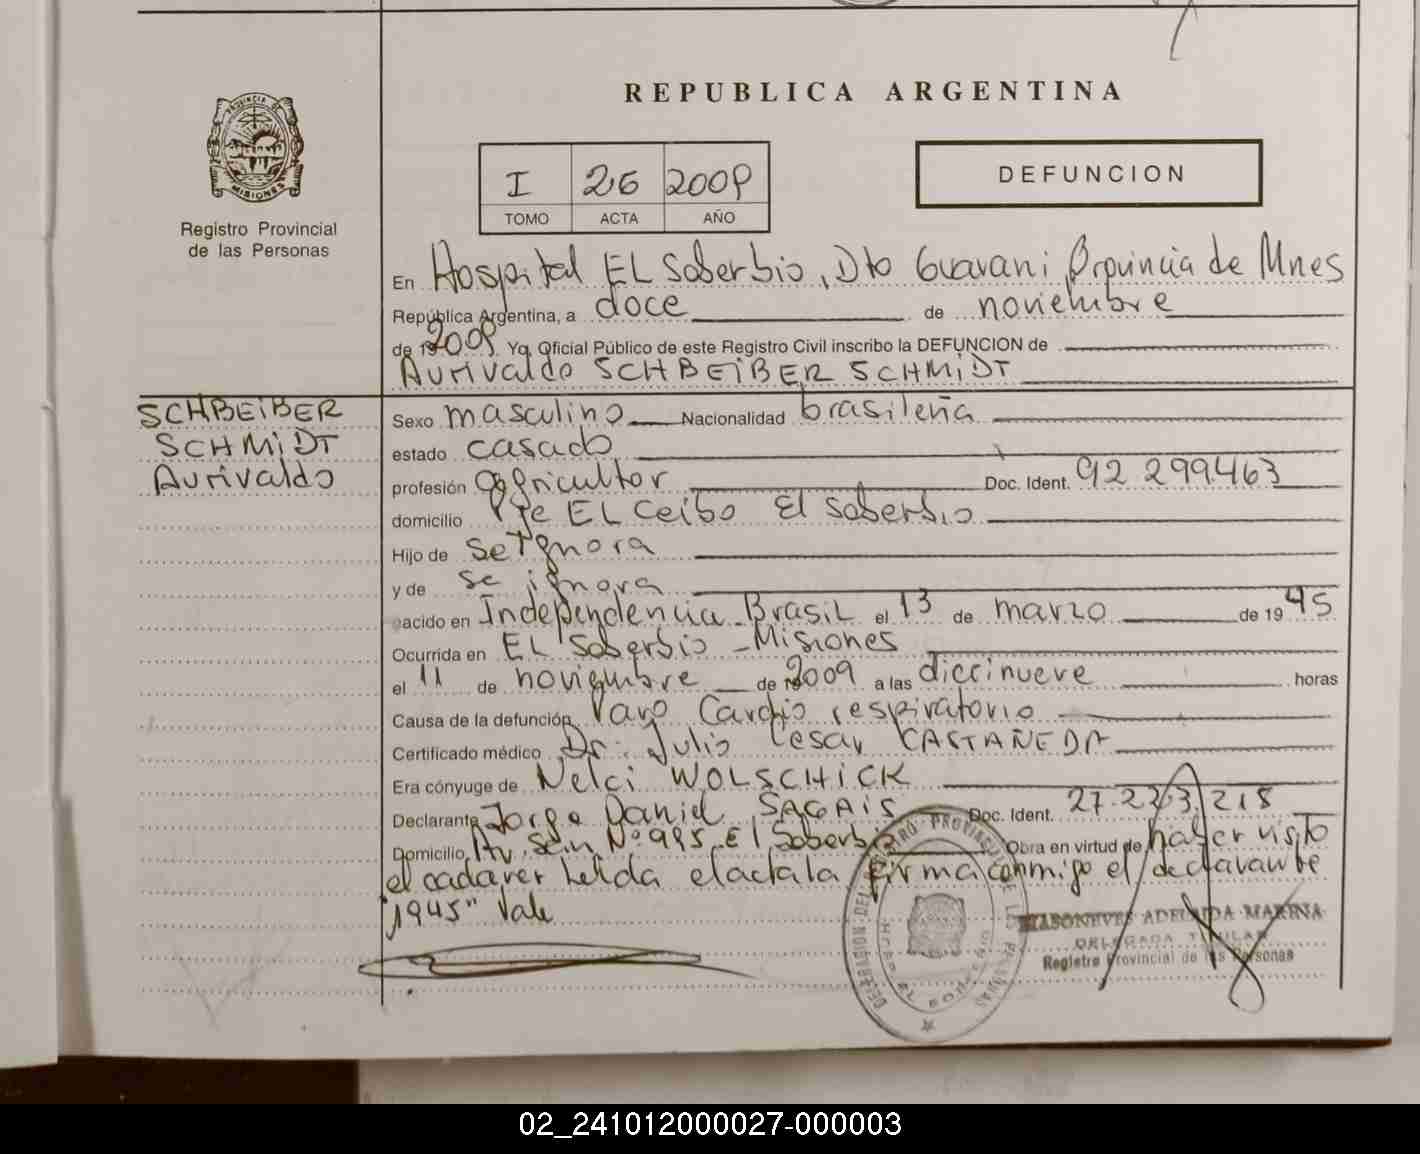 REPUBLICA ARGENTINA
PROVINCIA DE
MISIONES
Registro Provincial
de las Personas
I 26 2009
TOMO ACTA AÑO
DEFUNCION
En Hospital EL Soberbio, Dto Guarani, Provincia de Mnes
República Argentina, a doce de noviembre
de 19 2009. Yo, Oficial Público de este Registro Civil inscribo la DEFUNCION de
Aurivaldo SCHBEiBER SCHMiDT
SCHBEiBER
SCHMiDT
Aurivaldo
Sexo masculino Nacionalidad brasileña
estado casado
profesión agricultor Doc. Ident. 92 299.463
domicilio Pje EL Ceibo El Soberbio
Hijo de se ignora
y de se ignora
acido en Independencia - Brasil el 13 de marzo de 19 45
Ocurrida en EL Soberbio - Misiones
el 11 de noviembre de 2009 a las diecinueve horas
Causa de la defunción Paro Cardio respiratorio
Certificado médico Dr. Julio Cesar CASTAÑEDA
Era cónyuge de Nelci WOLSCHiCK
Declarante Jorge Daniel SAGAIS Doc. Ident. 27.223.218
Domicilio Av. San N° 995 - El Soberbio Obra en virtud de haber visto
el cadaver Leida el acta la firma conmigo el declarante
"1945" Vale
DELEGACION DEL REGISTRO PROVINCIAL DE LAS PERSONAS
EL SOBERBIO
MASONEVES ADELAIDA MARINA
DELEGADA TITULAR
Registro Provincial de las Personas
02_241012000027-000003